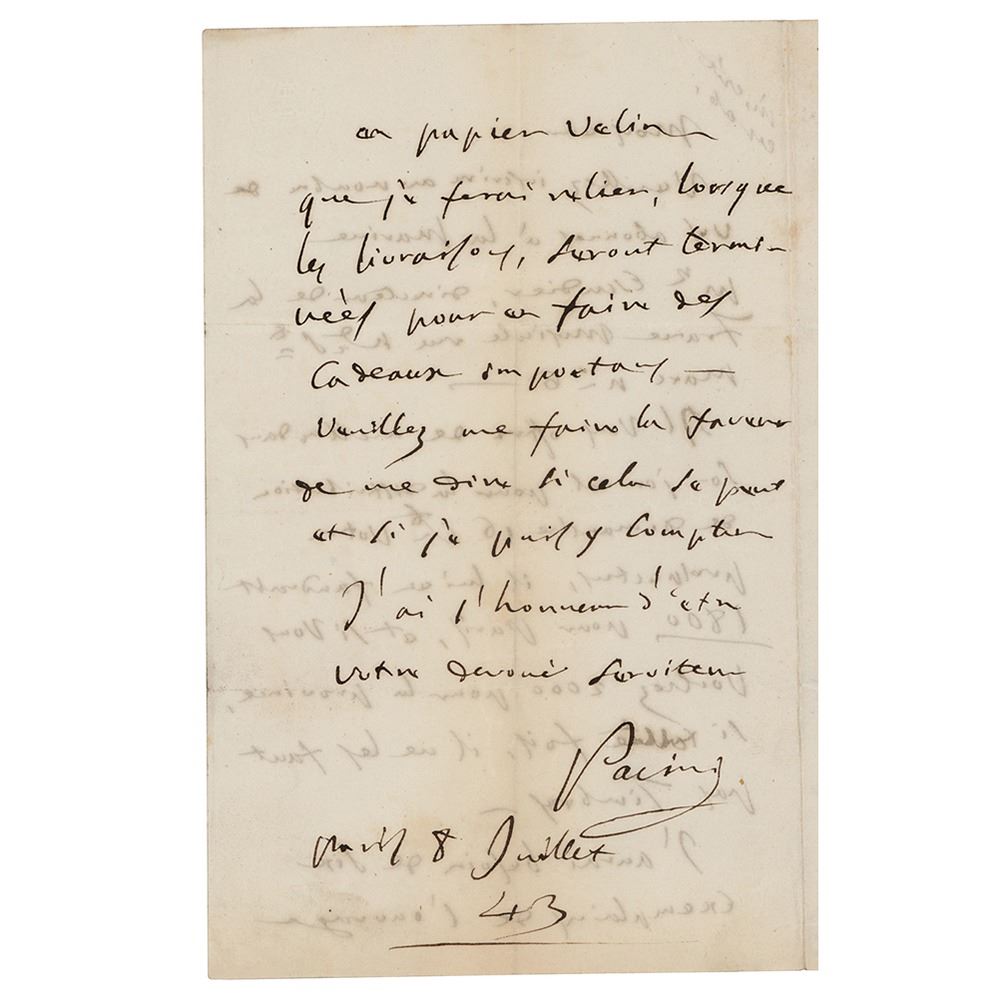 en papier Velin
que je ferai relier, lorsque
les livraisons, seront termi-
neés pour en faire des
Cadeaux importans —
Veuillez me faire la faveur
de me dire si cela se peut
et si je puis y Compter
J'ai l'honneur d'etre
votre devoué serviteur
Pacini
Paris 8 Juillet
43